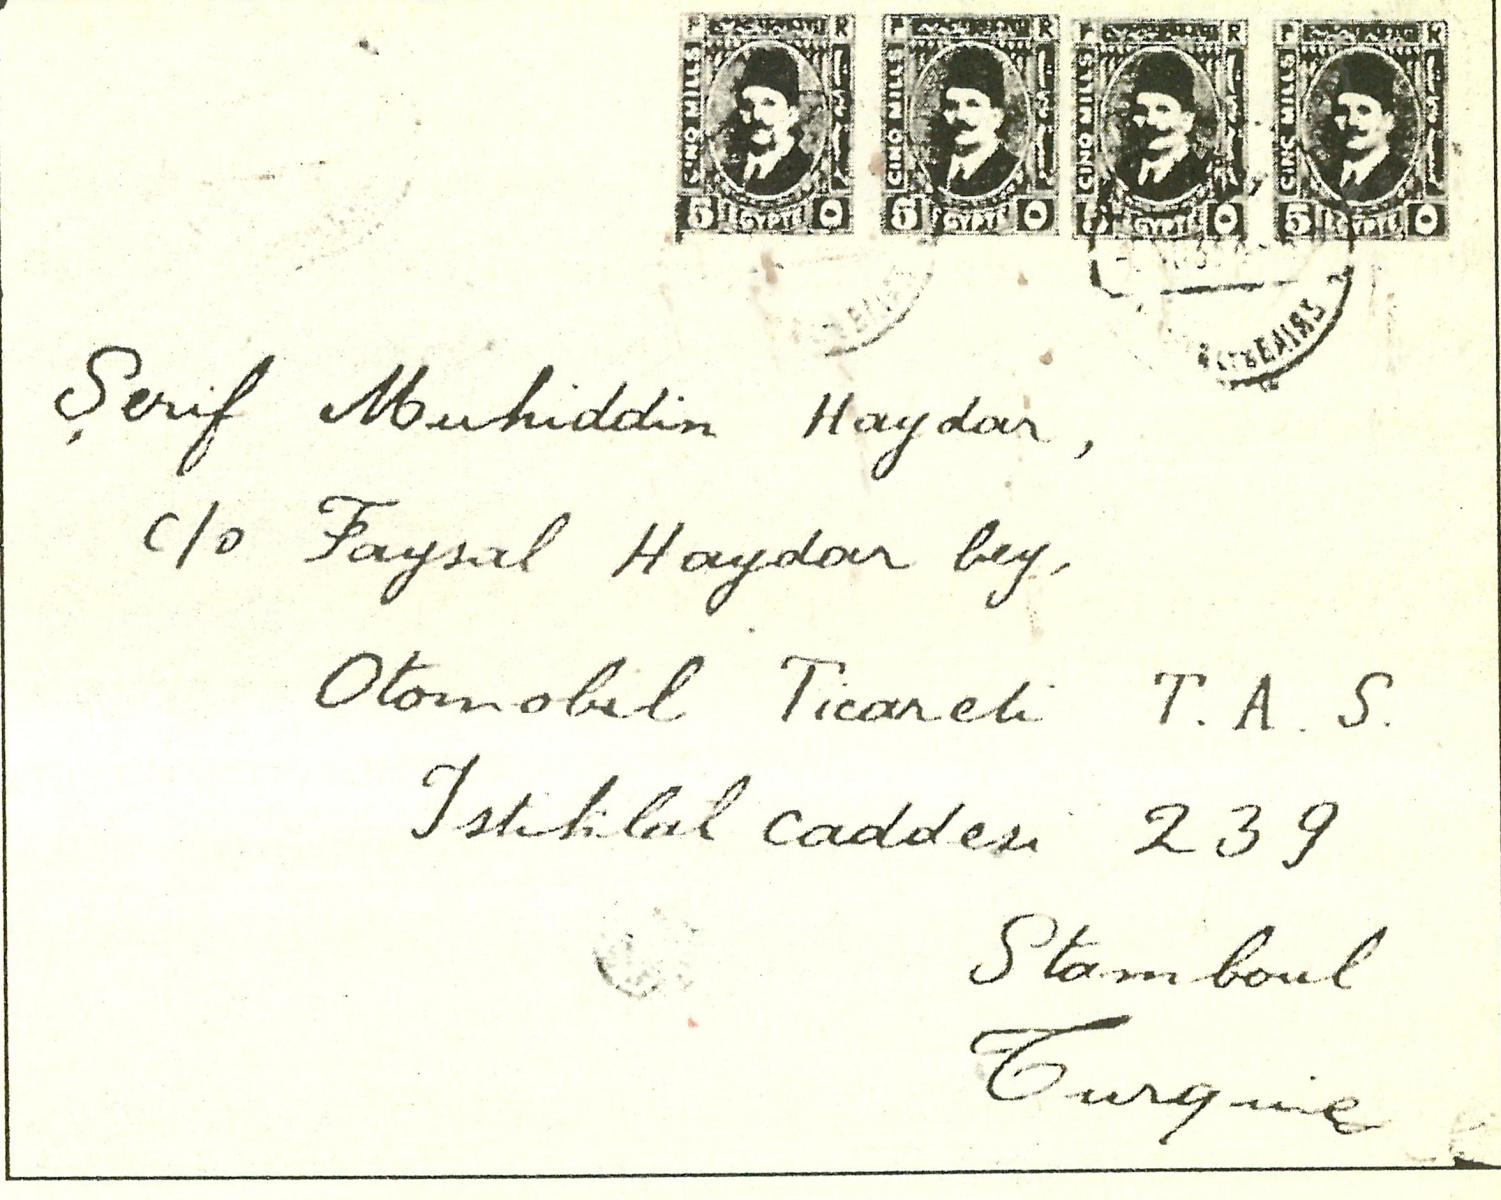 CINQ MILLS CINQ MILLS CINQ MILLS CINQ MILLS
5 EGYPTE ٥ 5 EGYPTE ٥ 5 EGYPTE ٥ 5 EGYPTE ٥
Şerif Muhiddin Haydar,
c/o Faysal Haydar bey,
Otomobil Ticareti T. A. S.
Istiklal caddesi 239
Stamboul
Turquie